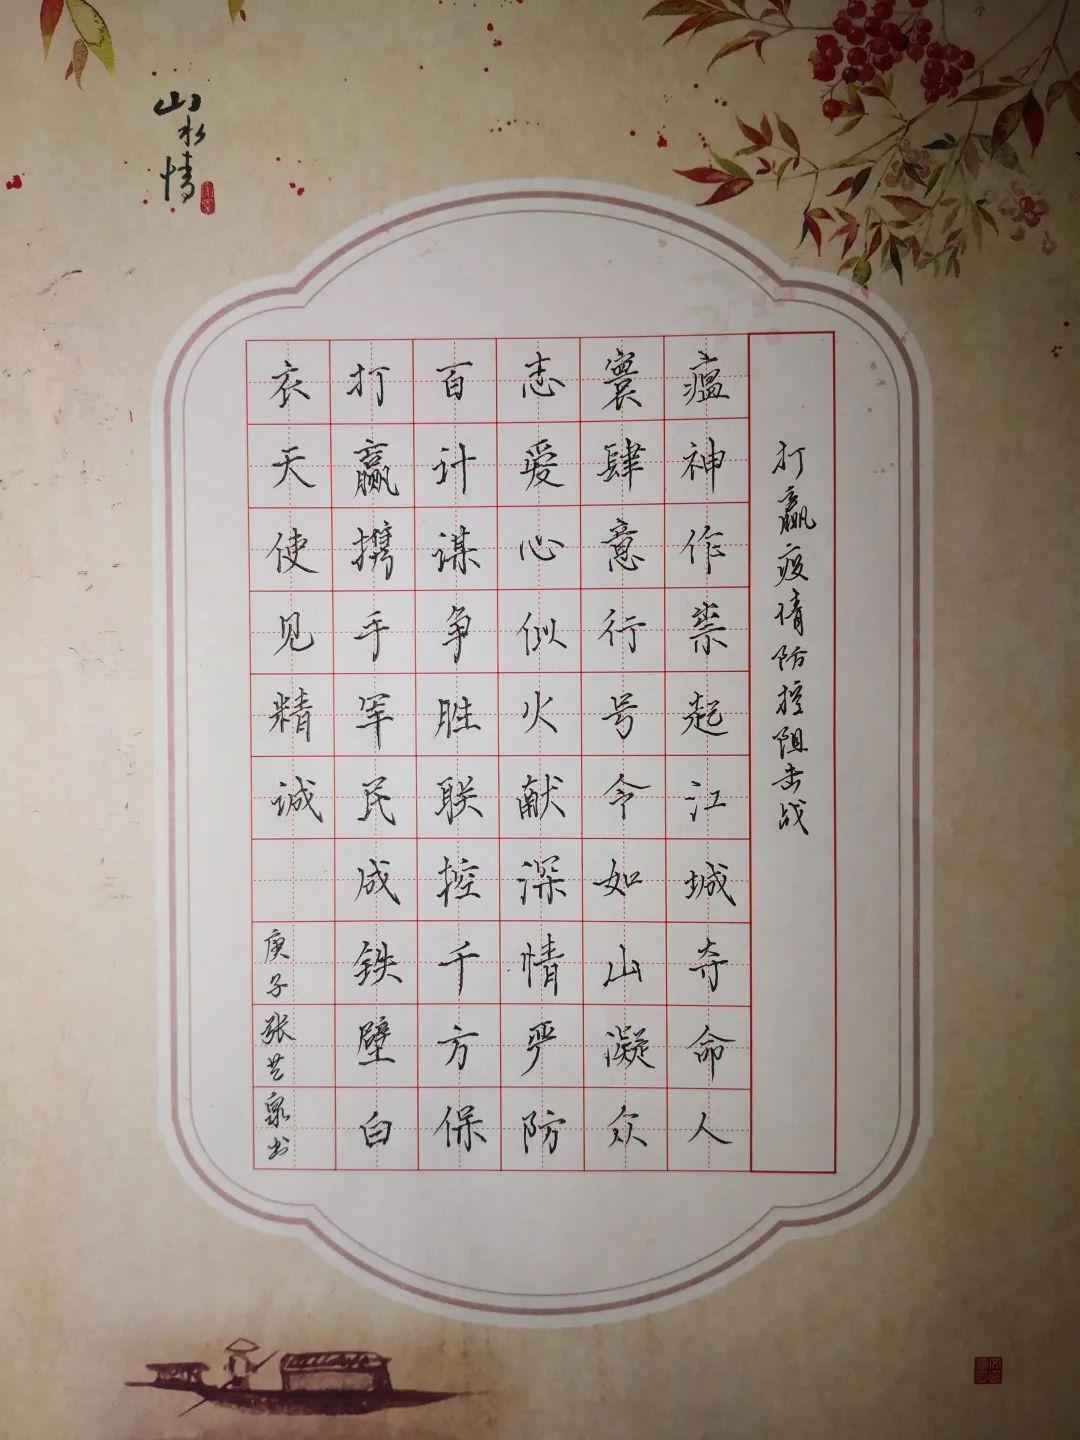 山水情
打赢疫情防控阻击战
瘟神作祟起江城夺命人
寰肆意行号令如山凝众
志爱心似火献深情严防
百计谋争胜联控千方保
打赢携手军民成铁壁白
衣天使见精诚
庚子张艺泉书